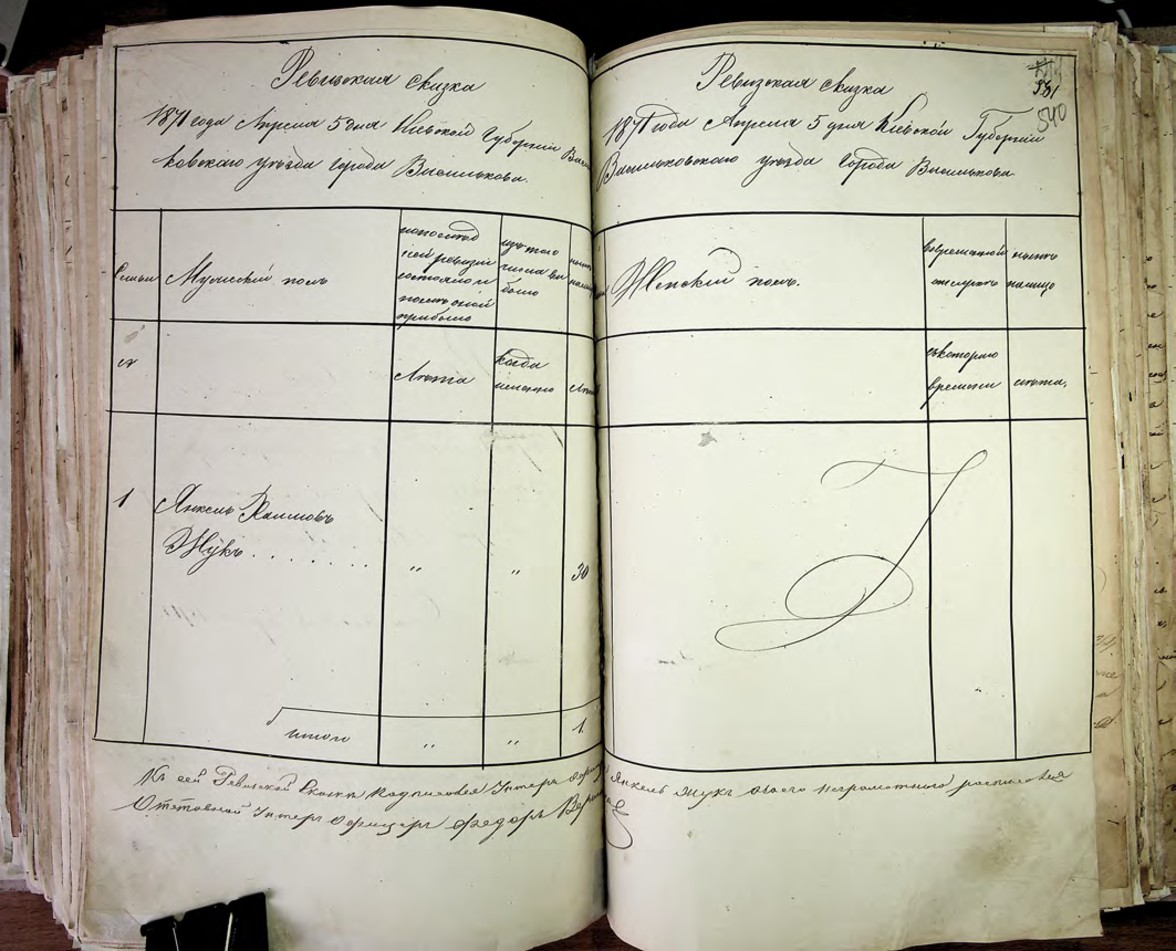 Ревизская сказка
1871 года Апреля 5 дня Киевской Губернии Василь
ковскаго уезда города Василькова.
Семьи
Мужеский полъ
по послед
ней ревизии
состояло и
после оной
прибыло
изъ того
числа вы
было
ныне
№
Лета
когда
именно
Лета
1
Янкель Хаимовъ
Жукъ . . . . . . .
"
"
30
итого
"
"
1.
Ревизская сказка
1871 года Апреля 5 дня Киевской Губернии
Васильковскаго уезда города Василькова
381
540
Женский полъ.
во временной
отлучке
ныне
налицо
съ котораго
времени
лета,
Къ сей Ревизской Сказки подписался Унтеръ Офицеръ Янкель Жукъ а за его неграмотнаго расписался
Отставной Унтеръ Офицеръ Федоръ